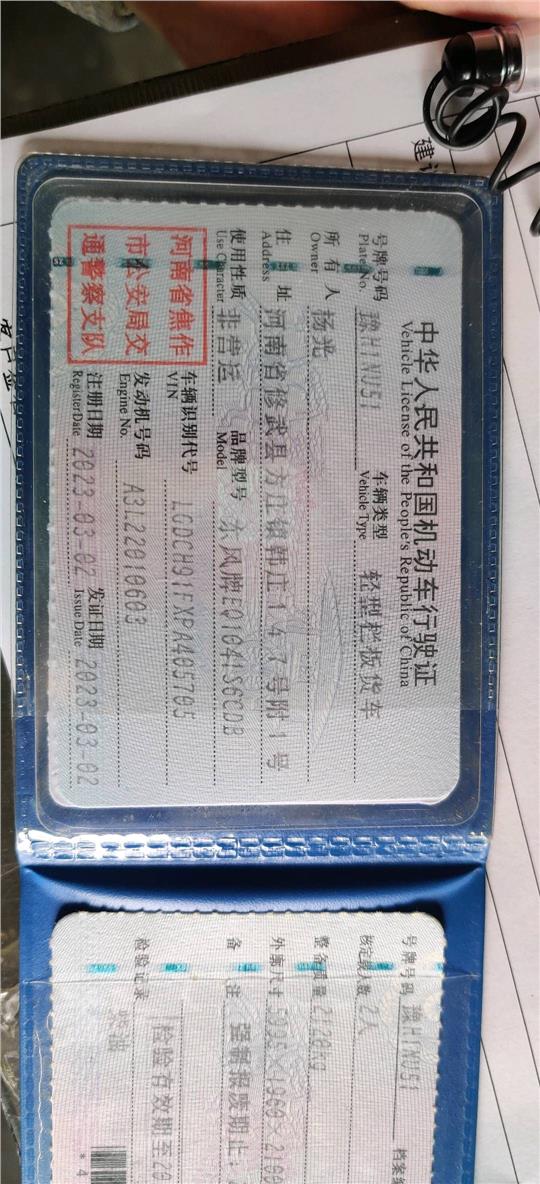 中华人民共和国机动车行驶证
Vehicle License of the People's Republic of China
号牌号码 豫H1NU51 车辆类型 轻型栏板货车
Plate No. Vehicle Type
所有人 杨光
Owner
住址 河南省修武县方庄镇韩庄147号附1号
Address
使用性质 非营运 品牌型号 东风牌EQ1041S6CDB
Use Character Model
河南省焦作
市公安局交
通警察支队
车辆识别代号 LGDCH91FXPA405705
VIN
发动机号码 A3L22010603
Engine No.
注册日期 2023-03-02 发证日期 2023-03-02
Register Date Issue Date
号牌号码 豫H1NU51 档案编
核定载人数 2人
整备质量 2720kg
外廓尺寸 5995×1960×2100
备注 强制报废期止:
检验有效期至20
检验记录 柴油
*4
建